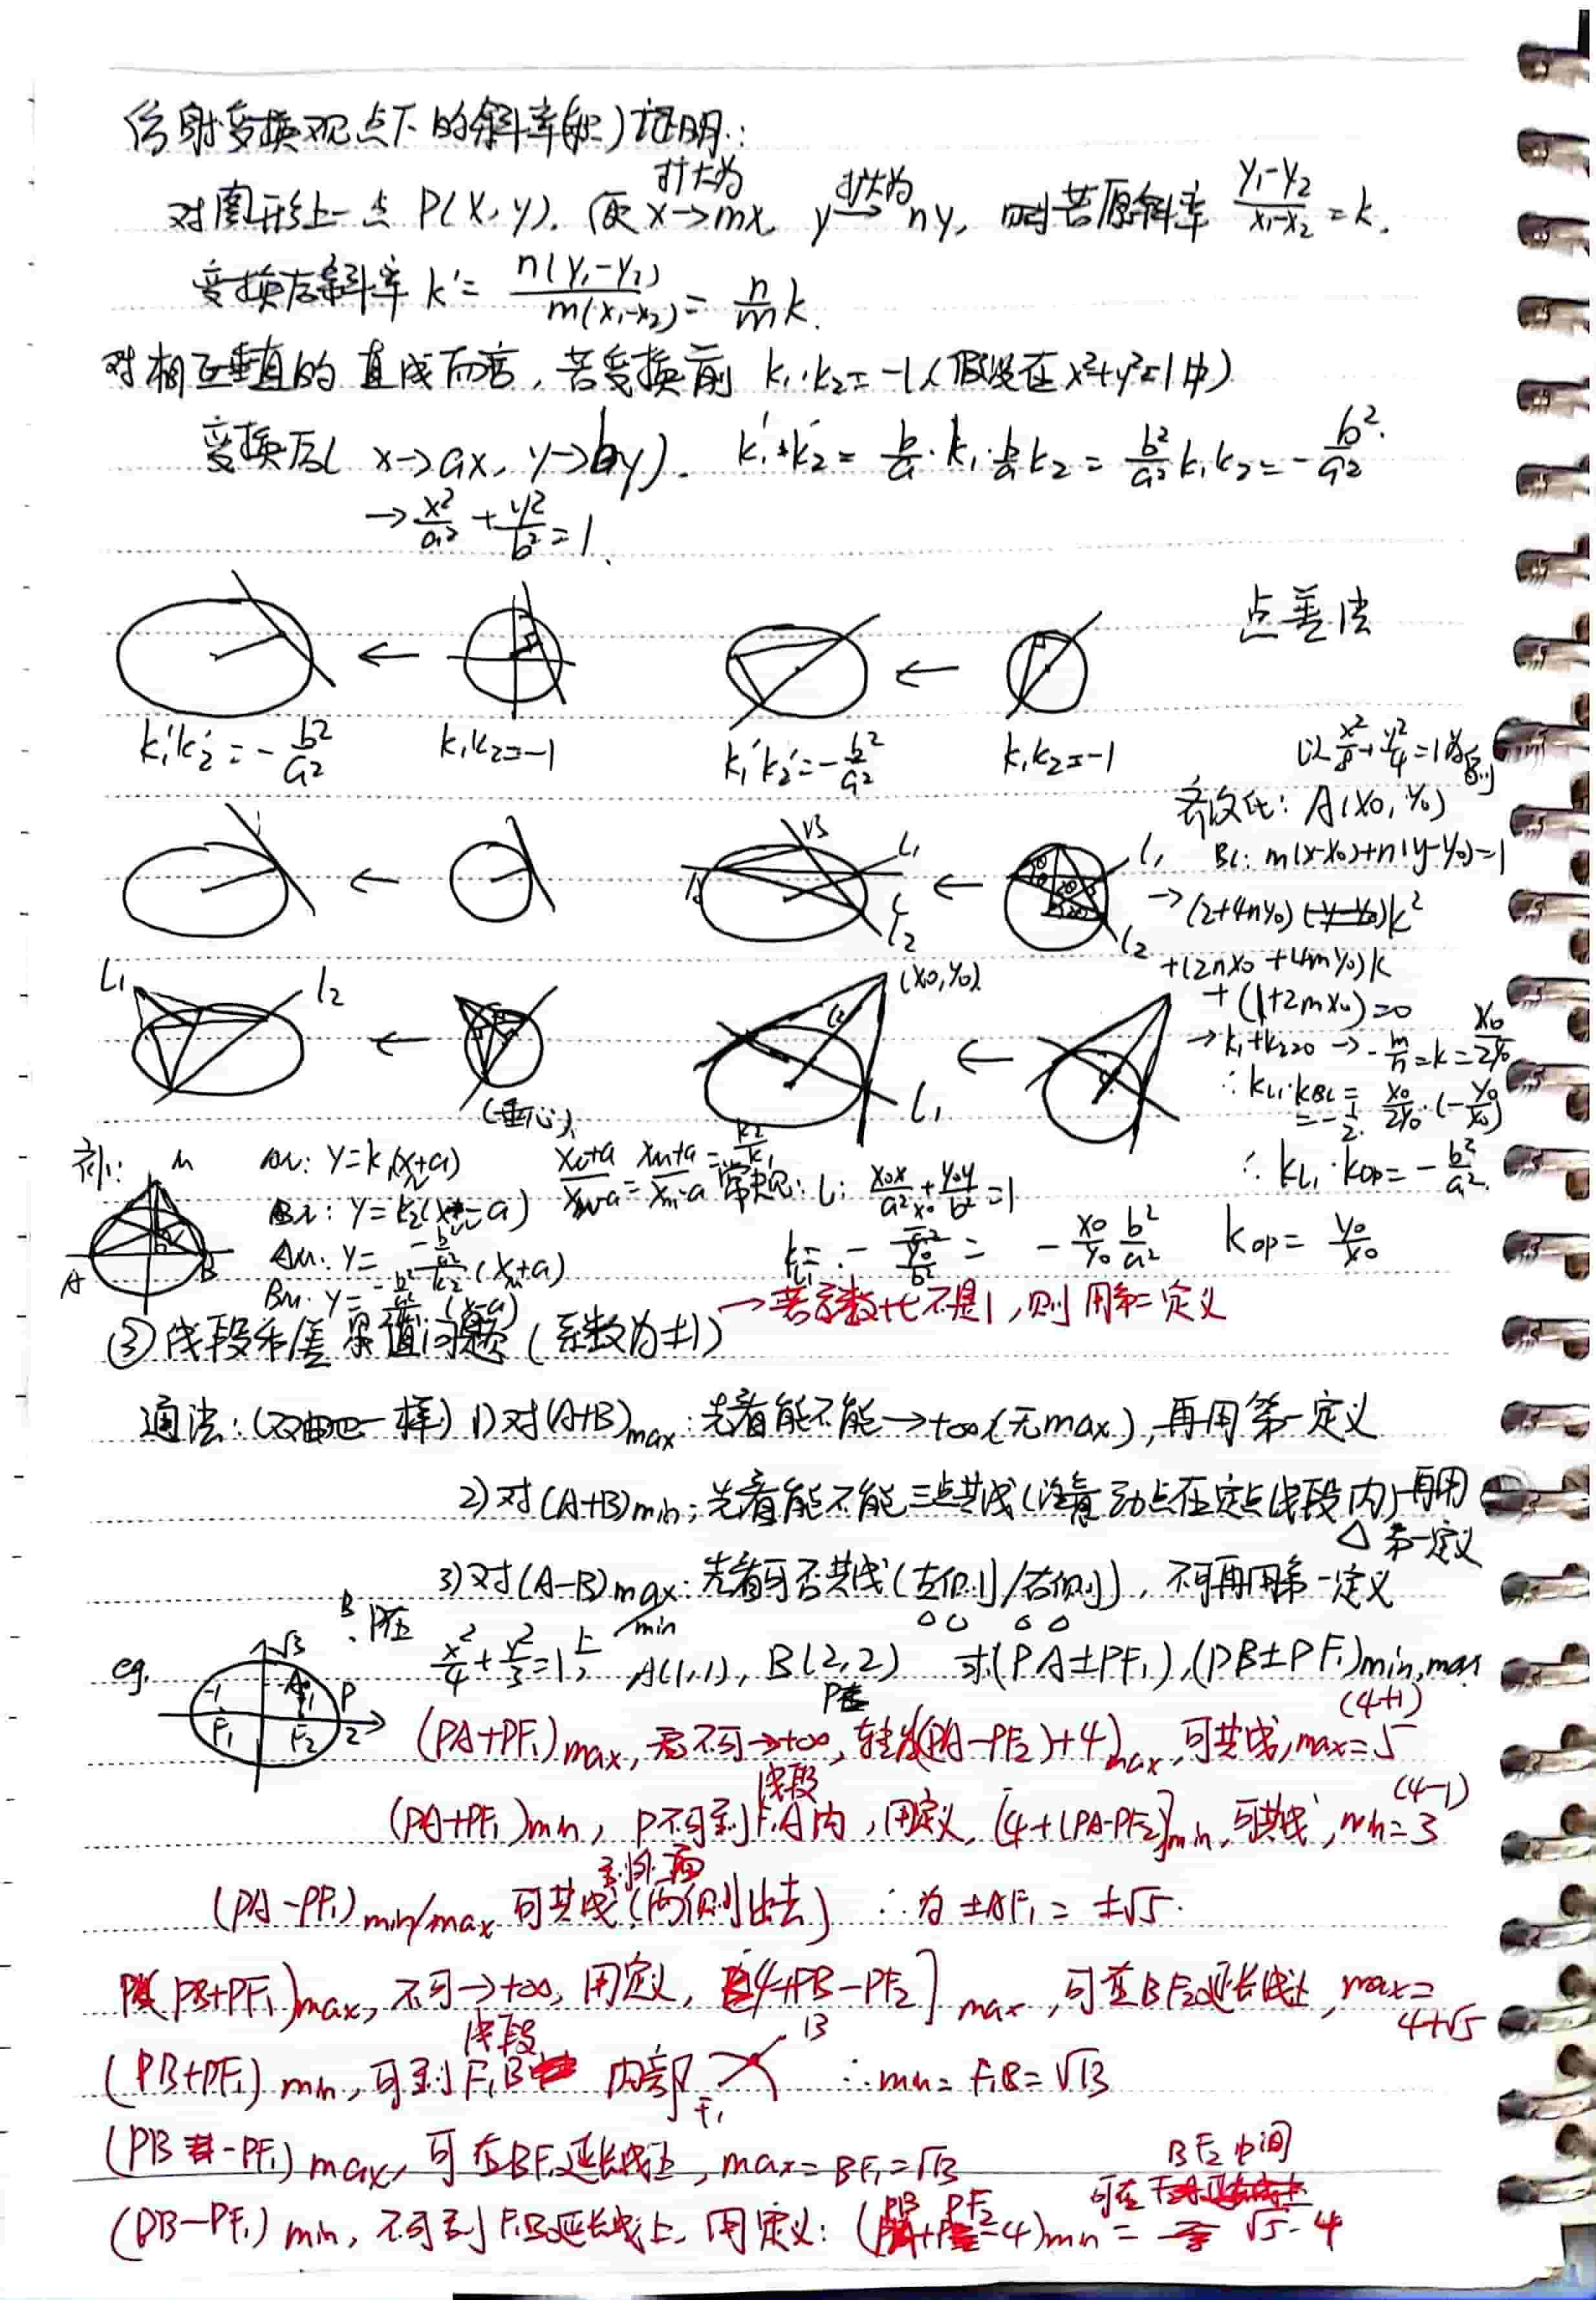 仿射变换观点下的斜率(积)证明:
对图形上一点 P(x,y). 使 x→mx, y→ny, 则若原斜率 (y₁-y₂)/(x₁-x₂)=k.
扩大为 扩大为
变换后斜率 k'= n(y₁-y₂)/m(x₁-x₂) = n/m k.
对相互垂直的直线而言, 若变换前 k₁·k₂=-1 (假设在 x²+y²=1中)
变换后( x→ax, y→by). k₁'·k₂' = b/a·k₁·b/a k₂ = b²/a² k₁k₂ = -b²/a².
→ x²/a² + y²/b² = 1.
点差法
k₁'k₂' = -b²/a²
k₁k₂=-1
k₁'k₂'=-b²/a²
k₁k₂=-1
以 x²/8+y²/4=1为例
齐次化: A(x₀,y₀)
BC: m(x-x₀)+n(y-y₀)=1
→(2+4ny₀)k²
+(2nx₀+4my₀)k
+(1+2mx₀)=0
→k₁+k₂=0 → -m/n=k=x₀/2y₀
∴kL₁·kBC = x₀/2y₀·(-y₀/x₀)
=-1/2.
∴ kL₁·kOP=-b²/a².
B L₁
A C L₂
L₁
L₂
L₁ L₂
(垂心)
(x₀,y₀)
L₂
L₁
补: M
A B
AN: y=k₁(x+a)
BN: y=k₂(x-a)
常规: L: x₀x/a²+y₀y/b²=1
kL₁=- = -x₀/y₀ b²/a² kOP=y₀/x₀
→若系数比不是1,则用第二定义
③线段和/差 最值问题 (系数为±1)
通法:(双曲也一样) 1)对(A+B)max: 先看能不能→+∞(无max),再用第一定义
2)对(A+B)min: 先看能不能三点共线(注意动点在定点线段内)再用
第一定义
3)对(A-B)max/min: 先看可否共线(左侧/右侧), 不可再用第一定义
eg. P在 x²/4+y²/3=1上, A(1,1), B(2,2) 求(PA±PF₁),(PB±PF₁)min,max
B √3 A P -1 1 F₁ F₂ 2
(PA+PF₁)max, 不可→+∞, 转为(PA-PF₂)+4)max, 可共线, max=5
(4+1)
(PA+PF₁)min, P不可到F₁A内, 用定义, [4+(PA-PF₂)]min, 可共线, min=3
线段
(4-1)
(PA-PF₁)min/max 可共线(两侧出去) ∴为±AF₁=±√5.
到外面
(PB+PF₁)max, 不可→+∞, 用定义, [4+PB-PF₂]max, 可在BF₂延长线上, max=
4+√5
(PB+PF₁)min, 可到F₁B 内部 ∴min=F₁B=√13
线段
B F₁
(PB-PF₁)max, 可在BF₁延长线上, max=BF₁=√13
(PB-PF₁)min, 不可到F₁B延长线上, 用定义: (PB+PF₂-4)min= √5-4
可在 BF₂中间